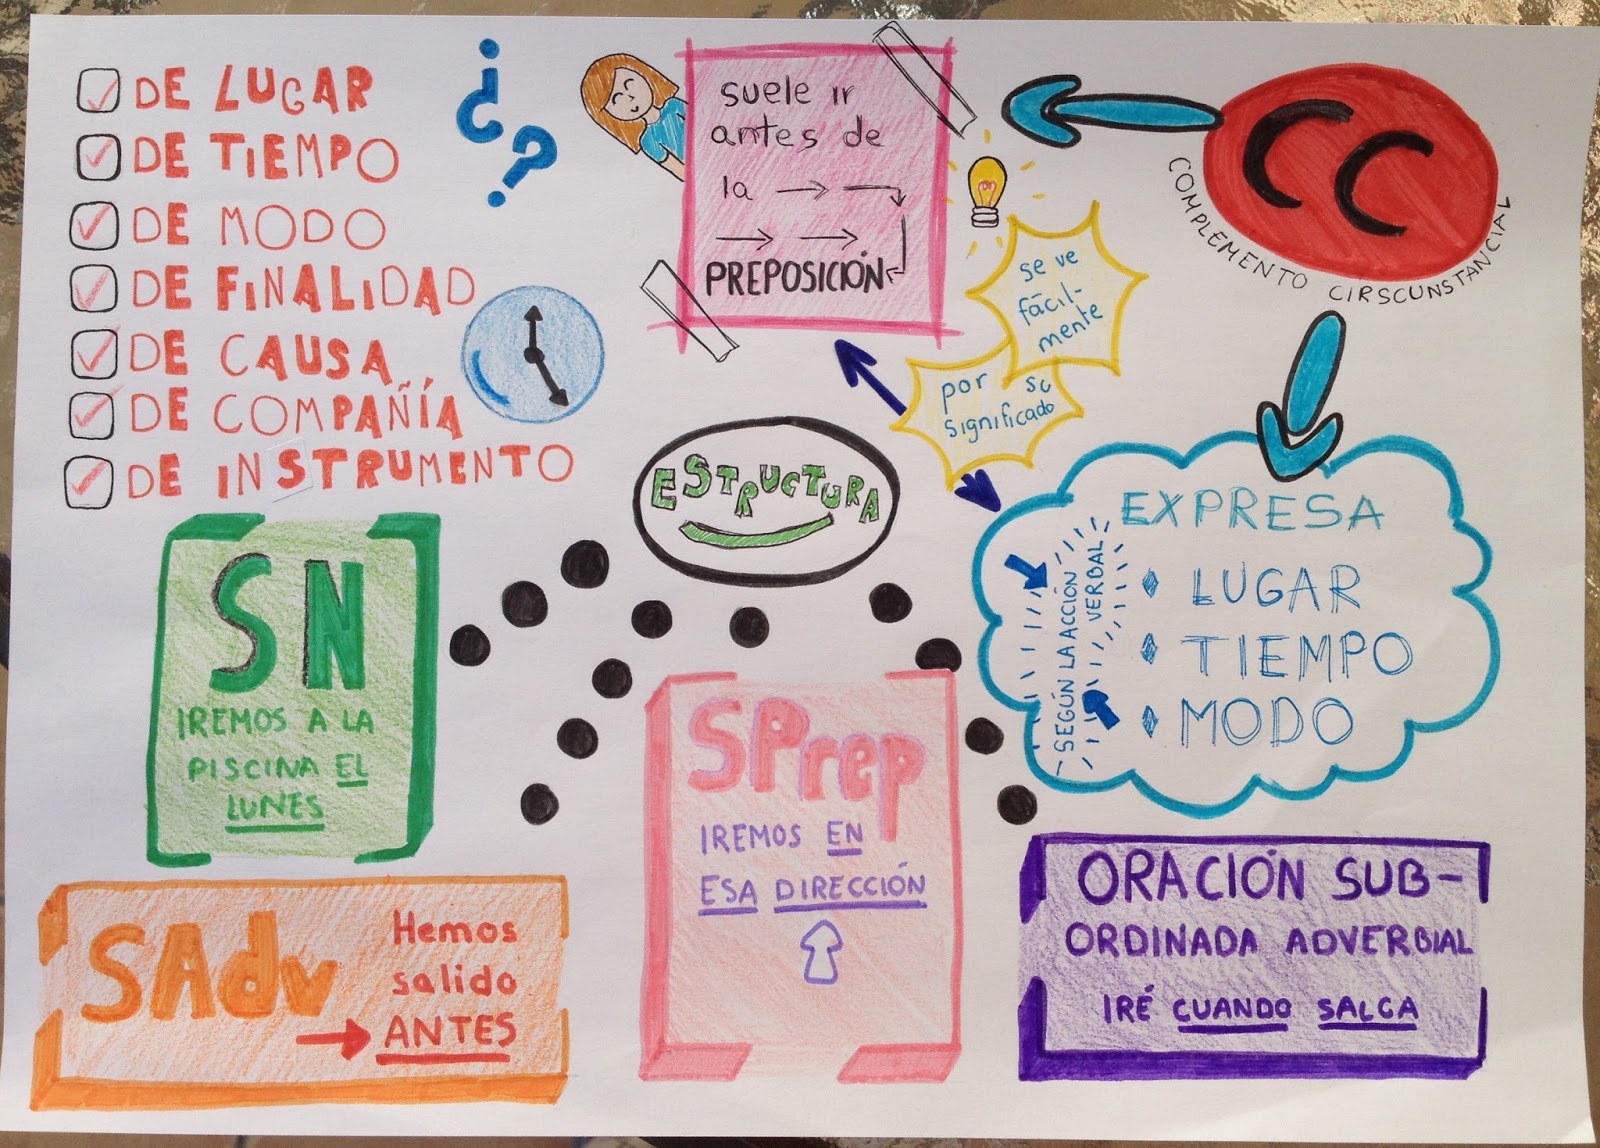 DE LUGAR
DE TIEMPO
DE MODO
DE FINALIDAD
DE CAUSA
DE COMPAÑÍA
DE INSTRUMENTO
¿?
suele ir
antes de
la
PREPOSICIÓN
CC
COMPLEMENTO CIRSCUNSTANCIAL
se ve
fácil-
mente
por su
significado
ESTRUCTURA
EXPRESA
LUGAR
TIEMPO
MODO
SEGÚN LA ACCIÓN
VERBAL
SN
IREMOS A LA
PISCINA EL
LUNES
SPrep
IREMOS EN
ESA DIRECCIÓN
SAdv
Hemos
salido
ANTES
ORACIÓN SUB-
ORDINADA ADVERBIAL
IRÉ CUANDO SALGA